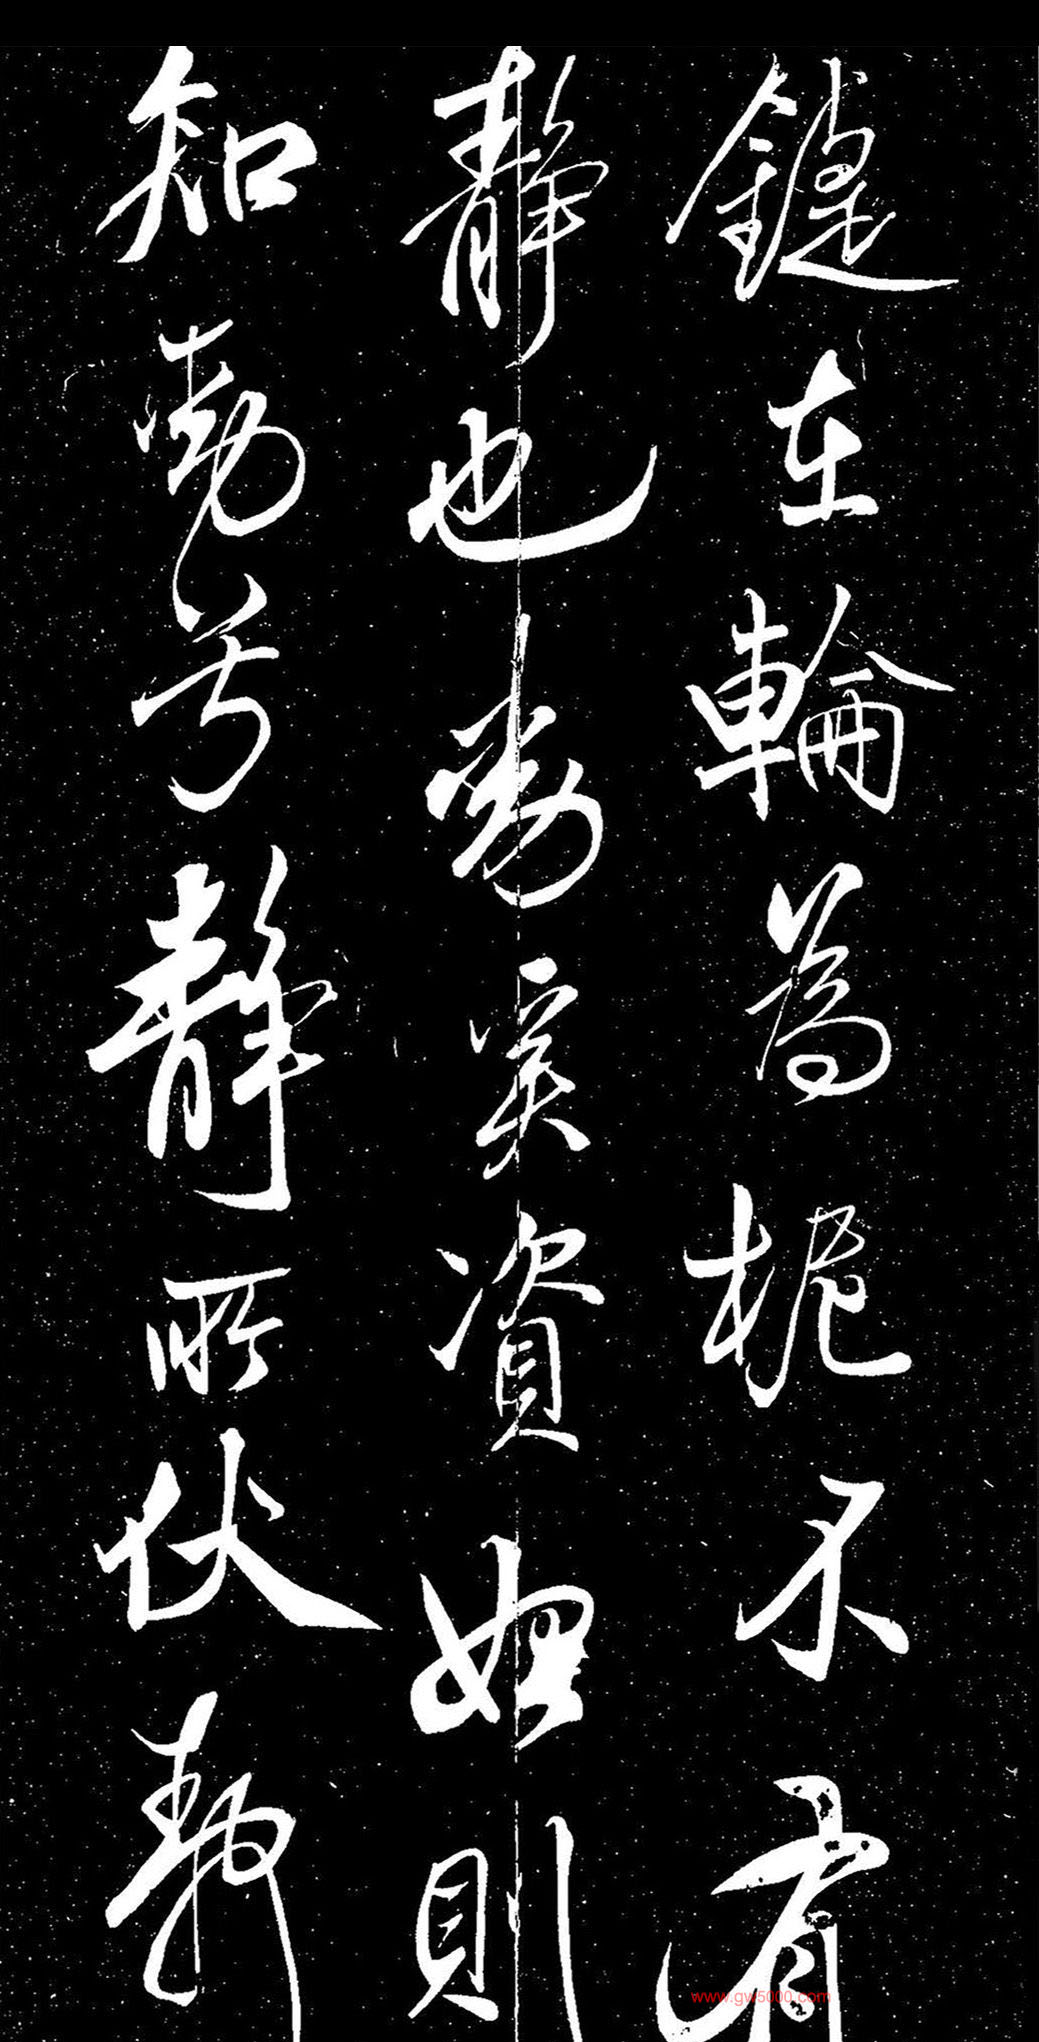 鍵在輪為柅不有
靜也動奚資始則
知動兮靜所伏靜
www.gw5000.com